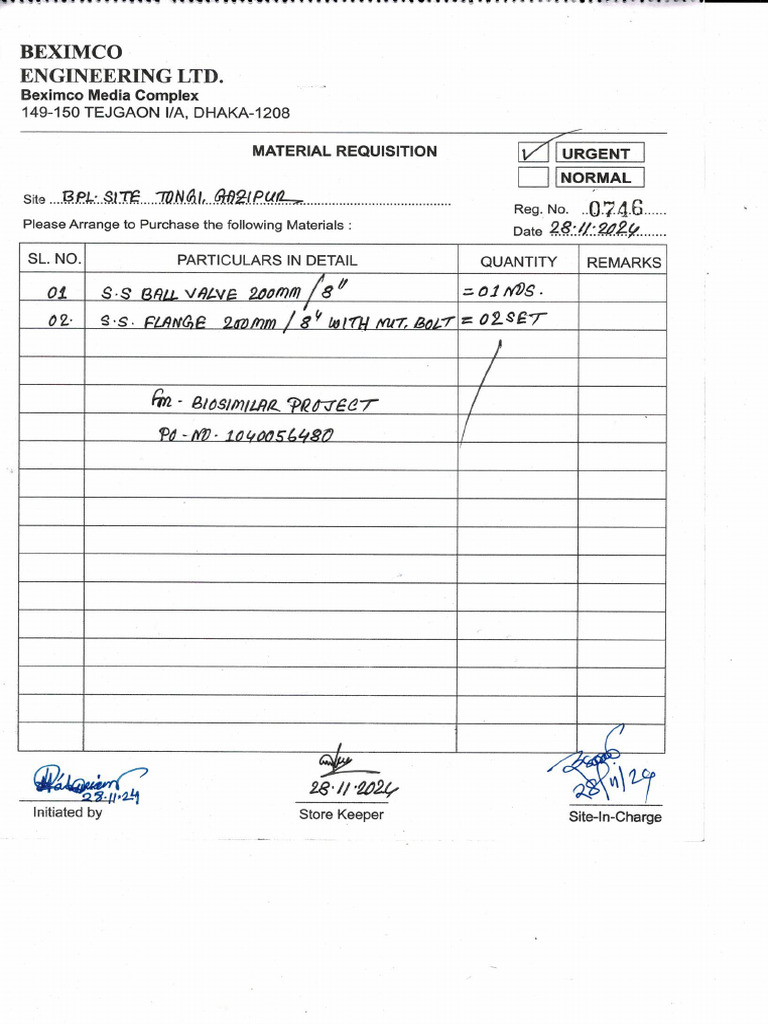 BEXIMCO
ENGINEERING LTD.
Beximco Media Complex
149-150 TEJGAON I/A, DHAKA-1208
MATERIAL REQUISITION
✓ URGENT
NORMAL
Site BPL. SITE TONGI, GAZIPUR
Reg. No. 0746
Please Arrange to Purchase the following Materials :
Date 28.11.2024
SL. NO. PARTICULARS IN DETAIL QUANTITY REMARKS
01 S.S BALL VALVE 200MM / 8" = 01 NOS.
02. S.S. FLANGE 200MM / 8" WITH NUT. BOLT = 02 SET
For - BIOSIMILAR PROJECT
PO - NO - 1040056480
28.11.24
28.11.2024
28/11/24
Initiated by
Store Keeper
Site-In-Charge